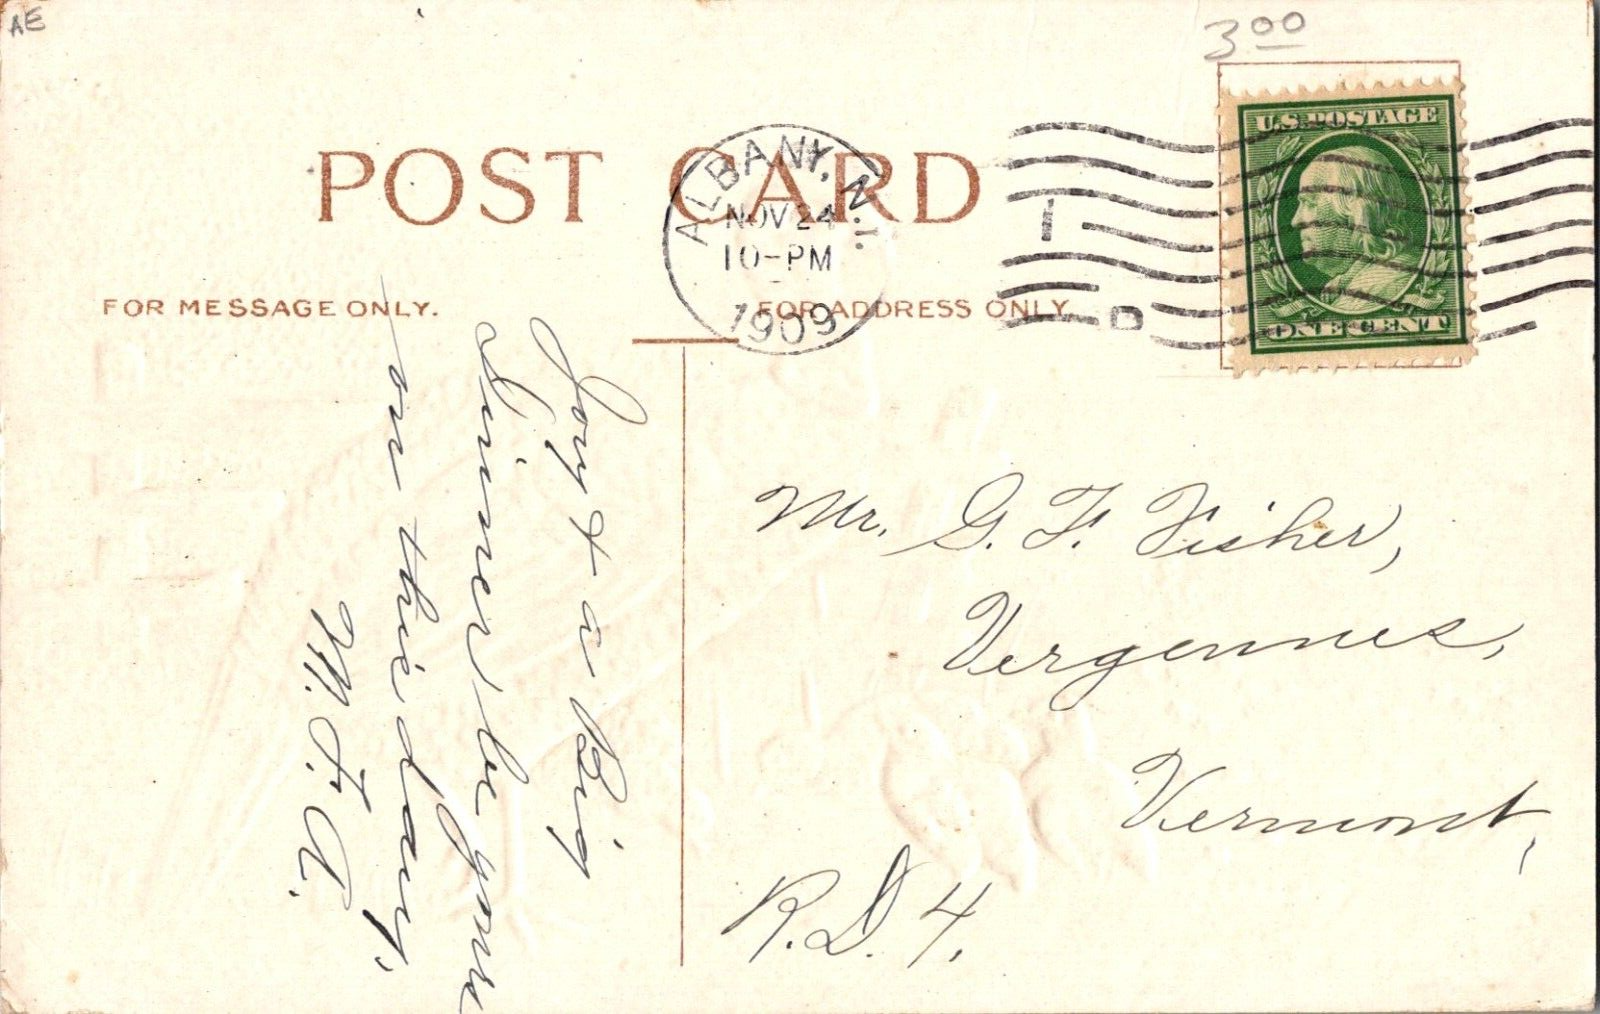 AE
3 00
POST CARD
ALBANY, N.Y.
NOV 24
10-PM
1909
1
D
U.S. POSTAGE
ONE CENT
FOR MESSAGE ONLY.
FOR ADDRESS ONLY.
Joy & a Big
Dinner be yours
on this day.
M. F. A.
Mr. G. F. Fisher,
Vergennes,
Vermont,
R.D. 4.